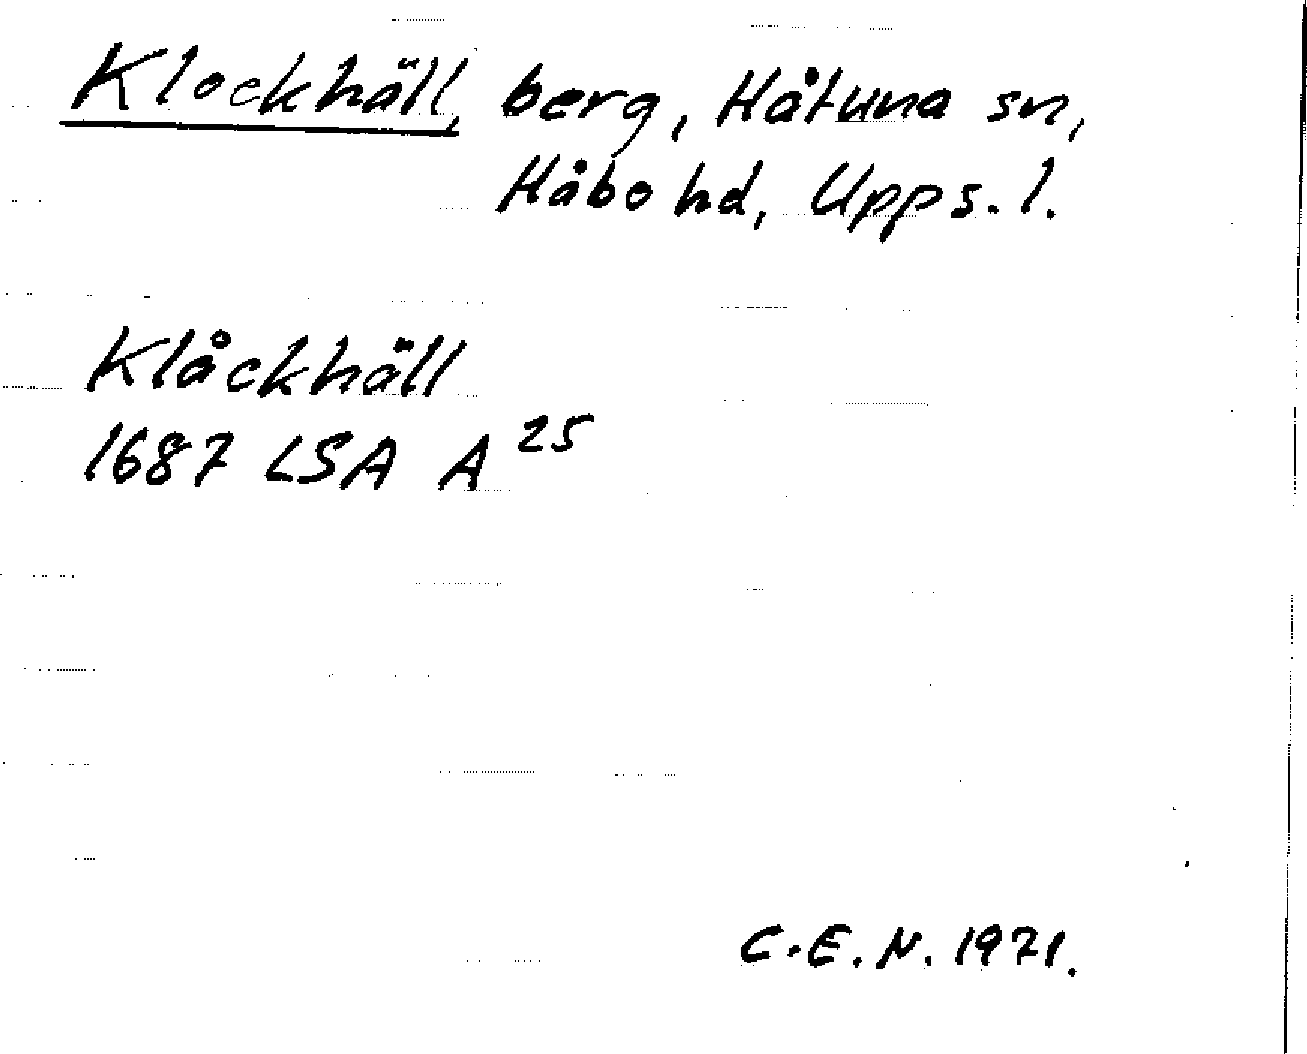 Klockhäll, berg, Håtuna sn,
Håbo hd, Upps. l.
Klåckhäll
1687 LSA A 25
C.E.N. 1971.